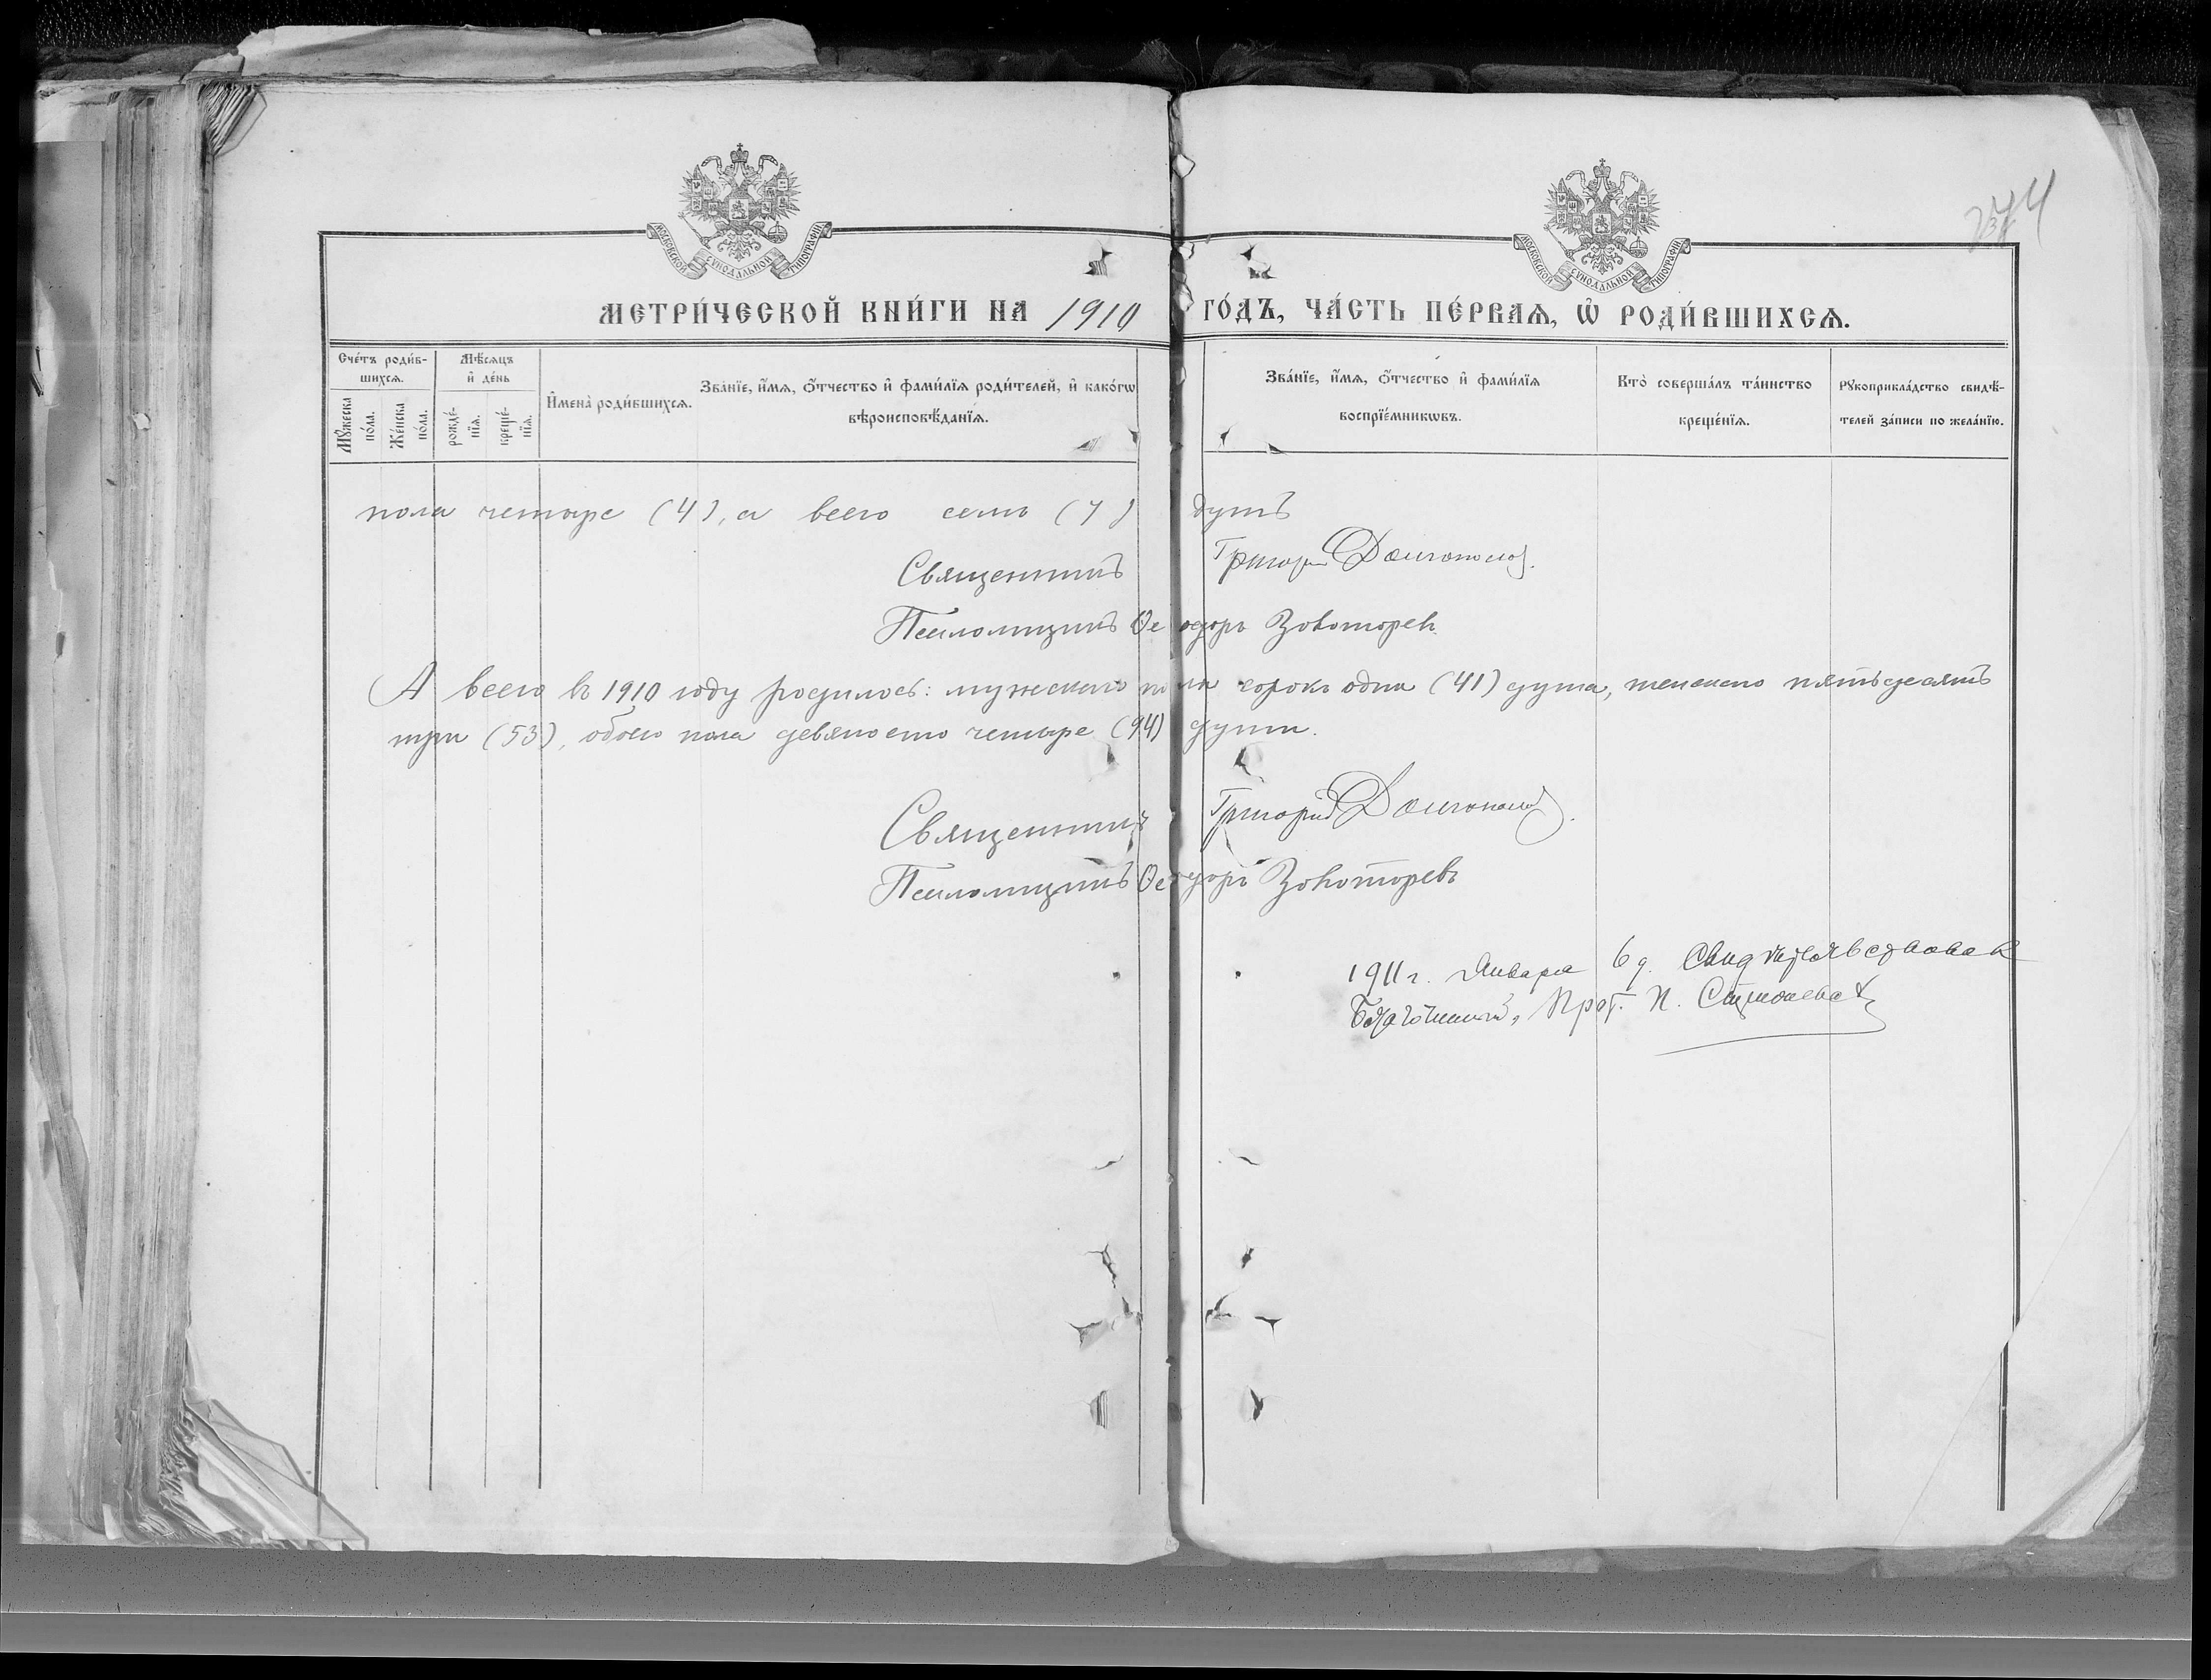 МОСКОВСКОЙ СѴНОДАЛЬНОЙ ТИПОГРАФІИ
МОСКОВСКОЙ СѴНОДАЛЬНОЙ ТИПОГРАФІИ
МЕТРИ́ЧЕСКОЙ КНИ́ГИ НА 1910 ГО́ДЪ, ЧА́СТЬ ПЕ́РВАѦ, Ѽ РОДИ́ВШИХСѦ.
Сче́тъ роди́в-
шихсѧ.
Мꙋ́жеска
по́ла.
Же́нска
по́ла.
Мѣ́сѧцъ
и҆ де́нь
рожде́-
нїѧ.
креще́-
нїѧ.
И҆мена̀ роди́вшихсѧ.
Зва́нїе, и҆́мѧ, ѻ҆́тчество и҆ фами́лїѧ роди́телей, и҆ како́гѡ
вѣроисповѣ́данїѧ.
Зва́нїе, и҆́мѧ, ѻ҆́тчество и҆ фами́лїѧ
воспрїе́мникѡвъ.
Кто̀ соверша́лъ та́инство
креще́нїѧ.
Рꙋкоприкла́дство свидѣ́-
телей за́писи по жела́нїю.
пола четыре (4), а всего семь (7) душъ
Священникъ Григорій
Псаломщикъ Ѳеодоръ
А всего въ 1910 году родилось: мужескаго пола сорокъ одна (41) душа, женскаго пятьдесятъ
три (53), обоего пола девяносто четыре (94) души.
Священникъ Григорій
Псаломщикъ Ѳеодоръ
1911 г. Января 6 д. Свидѣтельствовалъ
Благочинный, Прот. П.